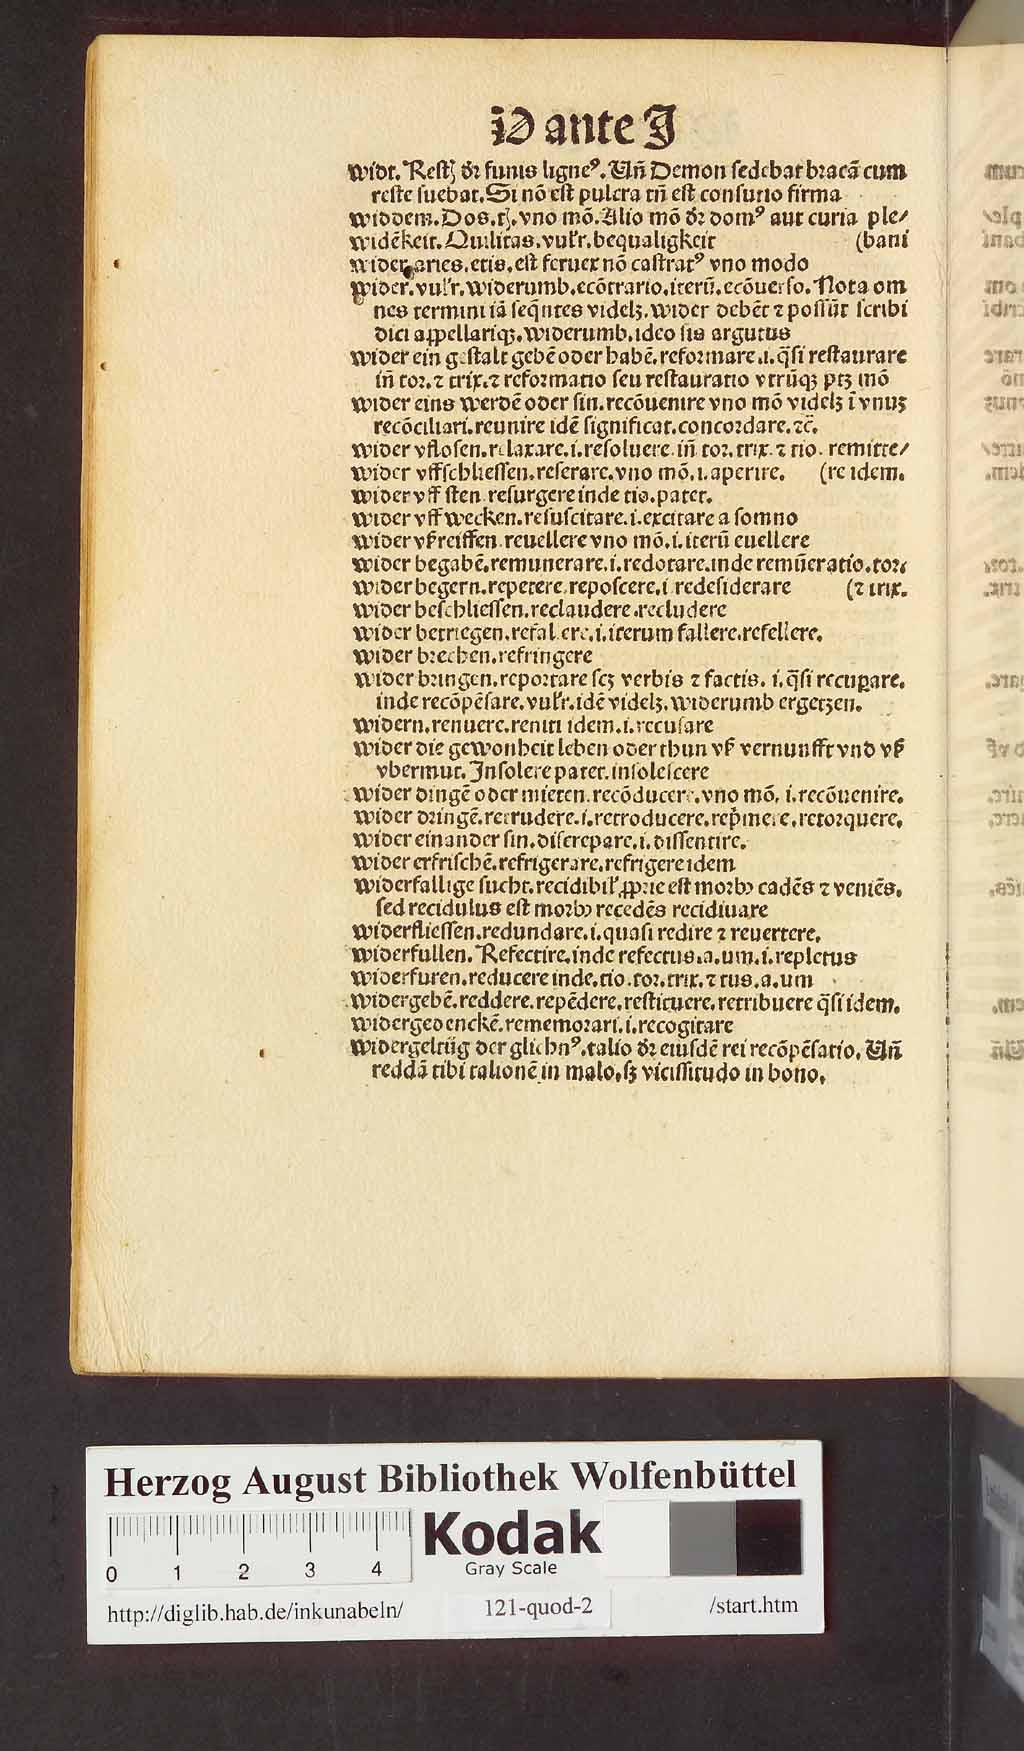 W ante I
widt. Restꝭ dr̄ funis ligneꝰ. Vñ Demon sedebat bracā cum
reste suebat. Si nō est pulcra tñ est consutio firma
widdem. Dos. tꝭ. vno mō. Alio mō dr̄ domꝰ aut curia ple/
widēkeit. Quilitas. vulr̄. bequaligkeit (bani
wider aries. etis. est feruex nō castratꝰ vno modo
wider. vulr̄. widerumb. ecōtrario. iterū. ecōuerso. Nota om
nes termini iā seq̄ntes videlꝫ. wider debēt ⁊ possūt scribi
dici appellariqꝫ. widerumb. ideo sis argutus
wider ein gestalt gebē oder habē. reformare .i. q̄si restaurare
iñ tor. ⁊ trix. ⁊ reformatio seu restauratio vtrūqꝫ ptꝫ mō
wider eins werdē oder sin. recōuenire vno mō videlꝫ ī vnuꝫ
recōciliari. reunire idē significat. concordare. ⁊c̄.
wider vflosen. relaxare. i. resoluere. iñ tor. trix. ⁊ tio. remitte/
wider vffschliessen. reserare. vno mō. i. aperire. (re idem.
wider vff sten resurgere inde tio. patet.
wider vff wecken. resuscitare. i. excitare a somno
wider vßreissen. reuellere vno mō. i. iterū euellere
wider begabē. remunerare. i. redotare. inde remūeratio. tor.
wider begern. repetere. reposcere. i redesiderare (⁊ trix.
wider beschliessen. reclaudere. recludere
wider betriegen. refallere. i. iterum fallere. refellere.
wider brechen. refringere
wider bringen. reportare scꝫ verbis ⁊ factis. i. q̄si recuꝑare.
inde recōpēsare. vulr̄. idē videlꝫ. widerumb ergetzen.
widern. renuere. reniti idem. i. recusare
wider die gewonheit leben oder thun vß vernunfft vnd vß
vbermut. Insolere patet. insolescere
wider dingē oder mieten. recōducere. vno mō. i. recōuenire.
wider dringē. retrudere. i. retroducere. rep̄mere. retorquere.
wider einander sin. discrepare. i. dissentire.
wider erfrischē. refrigerare. refrigere idem
widerfallige sucht. recidibil̄. ꝓprie est morbꝰ cadēs ⁊ veniēs.
sed recidulus est morbꝰ recedēs recidiuare
widerfliessen. redundare. i. quasi redire ⁊ reuertere.
widerfullen. Refectire. inde refectus. a. um. i. repletus
widerfuren. reducere inde. tio. tor. trix. ⁊ tus. a. um
widergebē. reddere. repēdere. restituere. retribuere q̄si idem.
widergedenckē. rememorari. i. recogitare
widergeltūg der glichnꝰ. talio dr̄ eiusdē rei recōpēsatio. Vñ
reddā tibi talionē in malo. sꝫ vicissitudo in bono.
Herzog August Bibliothek Wolfenbüttel
0 1 2 3 4
Kodak
Gray Scale
http://diglib.hab.de/inkunabeln/ 121-quod-2 /start.htm